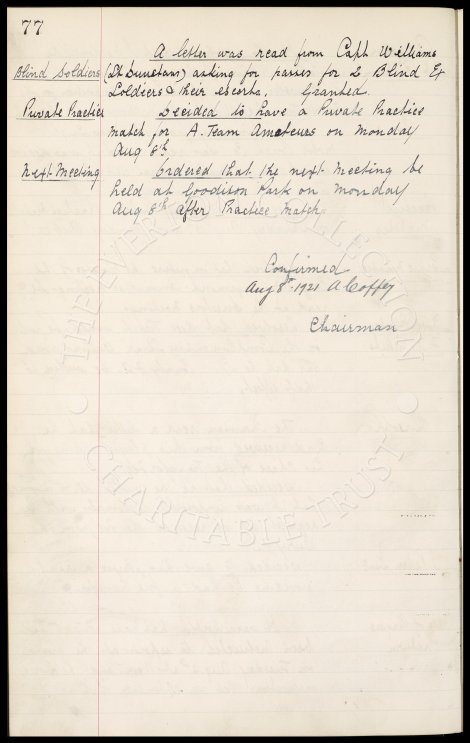 77
A letter was read from Capt Williams
Blind Soldiers (St Dunstans) asking for passes for 2 Blind Ex
Soldiers & their escorts. Granted.
Private Practice Decided to have a Private Practice
Match for A. Team Amateurs on Monday
Aug 8th.
Next Meeting Ordered that the next meeting be
held at Goodison Park on Monday
Aug 8th after Practice match.
Confirmed
Aug 8th 1921 A Coffey
Chairman
THE EVERTON COLLECTION
CHARITABLE TRUST